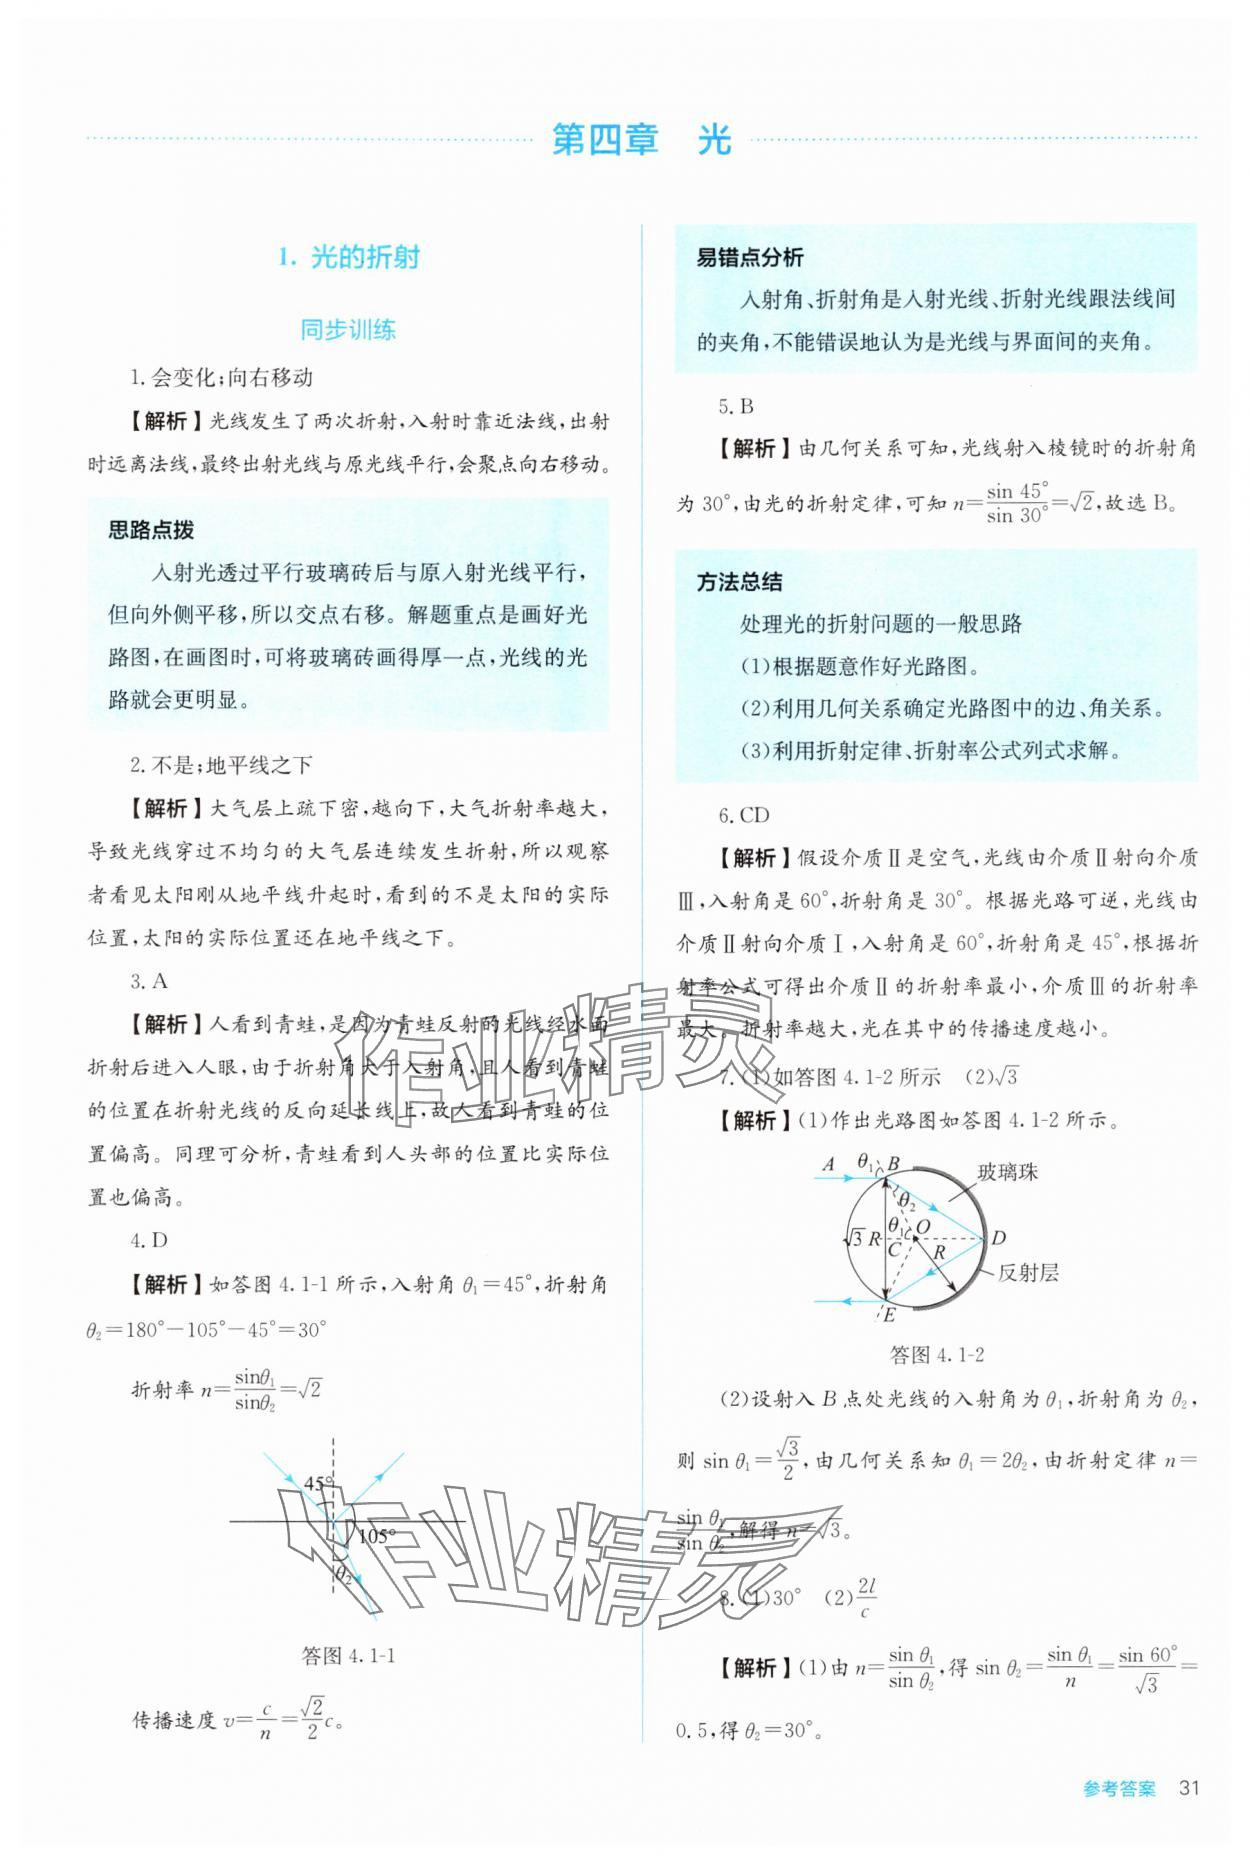 第四章 光
1. 光的折射
同步训练
1. 会变化;向右移动
【解析】光线发生了两次折射,入射时靠近法线,出射
时远离法线,最终出射光线与原光线平行,会聚点向右移动。
思路点拨
入射光透过平行玻璃砖后与原入射光线平行,
但向外侧平移,所以交点右移。解题重点是画好光
路图,在画图时,可将玻璃砖画得厚一点,光线的光
路就会更明显。
2. 不是;地平线之下
【解析】大气层上疏下密,越向下,大气折射率越大,
导致光线穿过不均匀的大气层连续发生折射,所以观察
者看见太阳刚从地平线升起时,看到的不是太阳的实际
位置,太阳的实际位置还在地平线之下。
3. A
【解析】人看到青蛙,是因为青蛙反射的光线经水面
折射后进入人眼,由于折射角大于入射角,且人看到青蛙
的位置在折射光线的反向延长线上,故人看到青蛙的位
置偏高。同理可分析,青蛙看到人头部的位置比实际位
置也偏高。
4. D
【解析】如答图 4.1-1 所示,入射角 θ₁=45°,折射角
θ₂=180°-105°-45°=30°
折射率 n=sinθ₁/sinθ₂=√2
45°
105°
θ₂
答图 4.1-1
传播速度 v=c/n=√2/2c。
易错点分析
入射角、折射角是入射光线、折射光线跟法线间
的夹角,不能错误地认为是光线与界面间的夹角。
5. B
【解析】由几何关系可知,光线射入棱镜时的折射角
为 30°,由光的折射定律,可知 n=sin 45°/sin 30°=√2,故选 B。
方法总结
处理光的折射问题的一般思路
(1)根据题意作好光路图。
(2)利用几何关系确定光路图中的边、角关系。
(3)利用折射定律、折射率公式列式求解。
6. CD
【解析】假设介质Ⅱ是空气,光线由介质Ⅱ射向介质
Ⅲ,入射角是 60°,折射角是 30°。根据光路可逆,光线由
介质Ⅱ射向介质Ⅰ,入射角是 60°,折射角是 45°,根据折
射率公式可得出介质Ⅱ的折射率最小,介质Ⅲ的折射率
最大。折射率越大,光在其中的传播速度越小。
7. (1)如答图 4.1-2 所示 (2)√3
【解析】(1)作出光路图如答图 4.1-2 所示。
A θ₁ B 玻璃珠
θ₂
√3 R θ₁ O D
C R
反射层
E
答图 4.1-2
(2)设射入 B 点处光线的入射角为 θ₁,折射角为 θ₂,
则 sin θ₁=√3/2,由几何关系知 θ₁=2θ₂,由折射定律 n=
sin θ₁/sin θ₂,解得 n=√3。
8. (1)30° (2)2l/c
【解析】(1)由 n=sin θ₁/sin θ₂,得 sin θ₂=sin θ₁/n=sin 60°/√3=
0.5,得 θ₂=30°。
参考答案 31
作业精灵
作业精灵